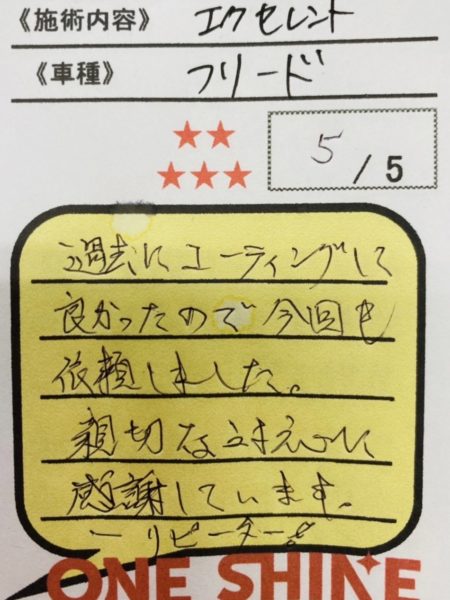 《施術内容》 エクセレント
《車種》 フリード
5 / 5
過去にコーティングして
良かったので今回も
依頼しました。
親切な対応に
感謝しています。
ーリピーター!
ONE SHINE